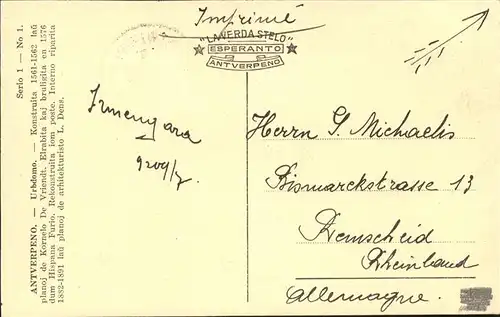 Serio 1 — No 1.
ANTVERPENO. — Urbdomo. — Konstruita 1561-1562 laŭ
planoj de Kornelo De Vriendt. Elrabita kaj bruligita en 1576
dum Hispana Furio. Rekonstruita iom poste. Interno riparita
1882-1891 laŭ planoj de arĥitekturisto L. Dens.
Imprimé
"LA VERDA STELO"
ESPERANTO
ANTVERPENO
Irmengara
Herrn G. Michaelis
Bismarckstrasse 13
Remscheid
Rheinland
Allemagne.